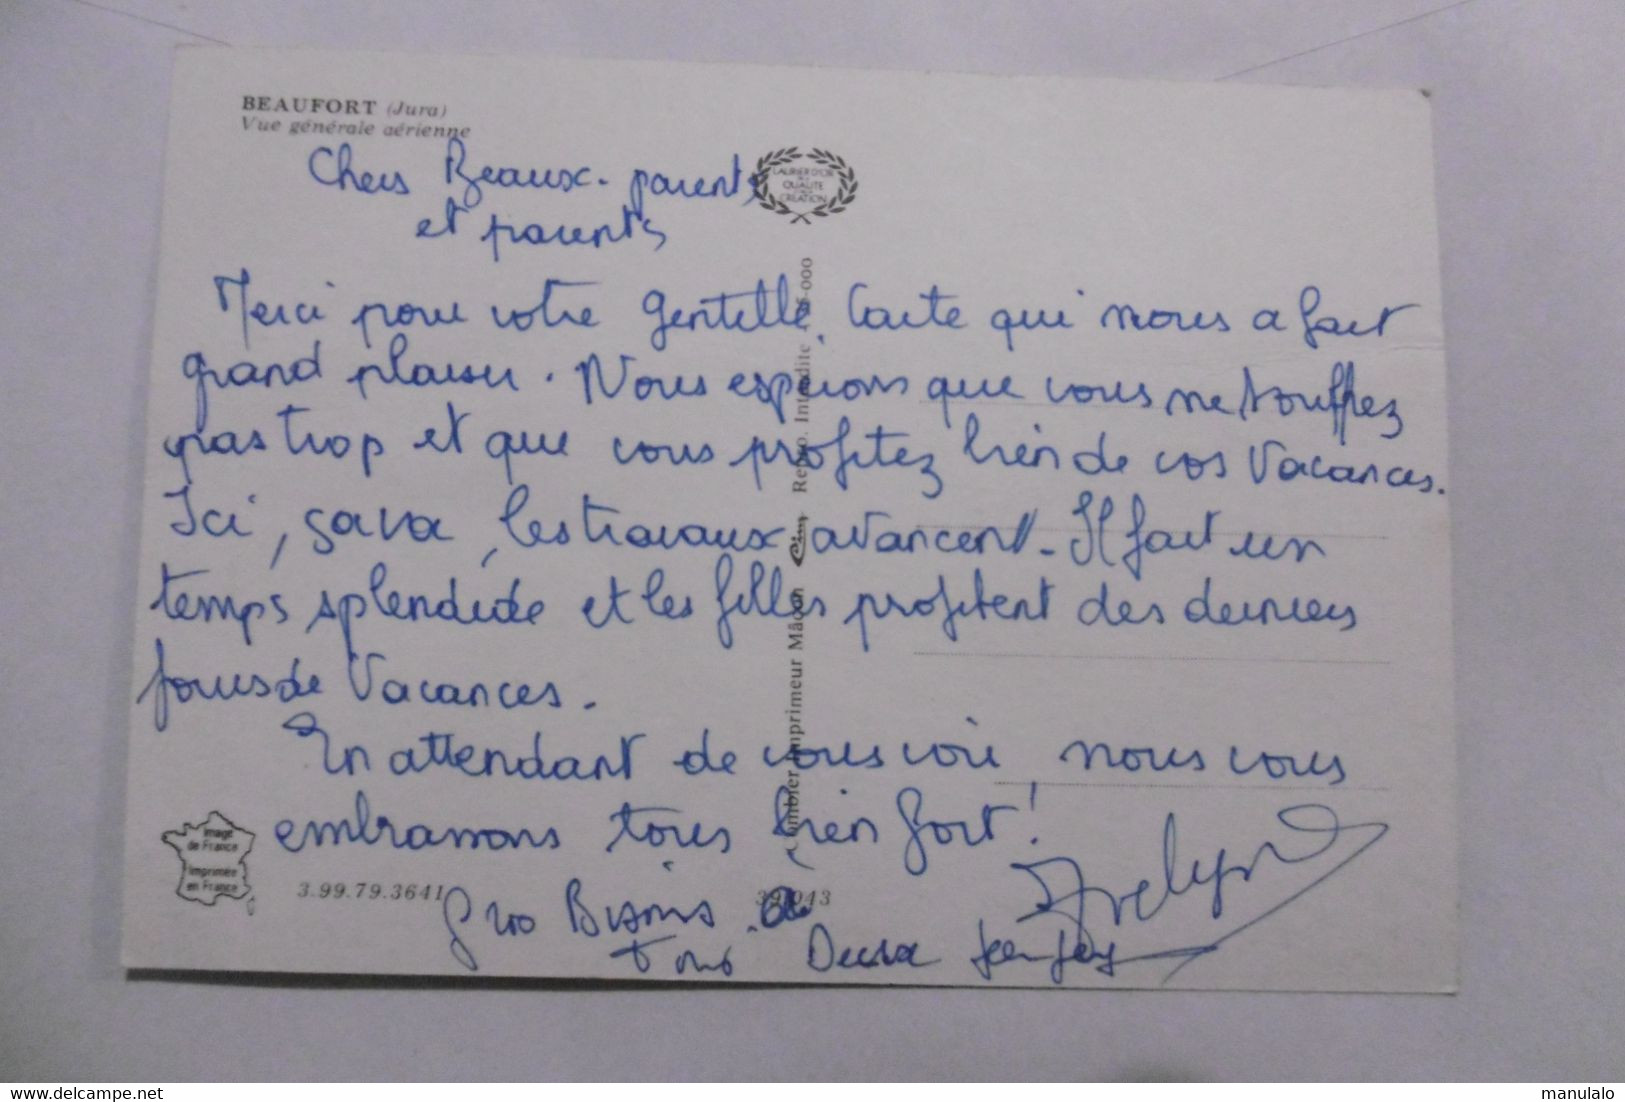 BEAUFORT (Jura)
Vue générale aérienne
LAURIER D'OR
QUALITE
CREATION
Chers Beaux-parents
et parents
Merci pour votre gentille Carte qui nous a fait
grand plaisir. Nous espérons que vous ne souffrez
pas trop et que vous profitez bien de vos Vacances.
Ici, ça va, les travaux avancent. Il fait un
temps splendide et les filles profitent des derniers
jours de Vacances.
En attendant de vous voir, nous vous
embrassons tous bien fort!
Evelyne
Gros Bisous à
tous Deux Jean Guy
Combier Imprimeur Mâcon Cim Repro. Interdite
Image
de France
Imprimée
en France
3.99.79.3641
delcampe.net
manulalo